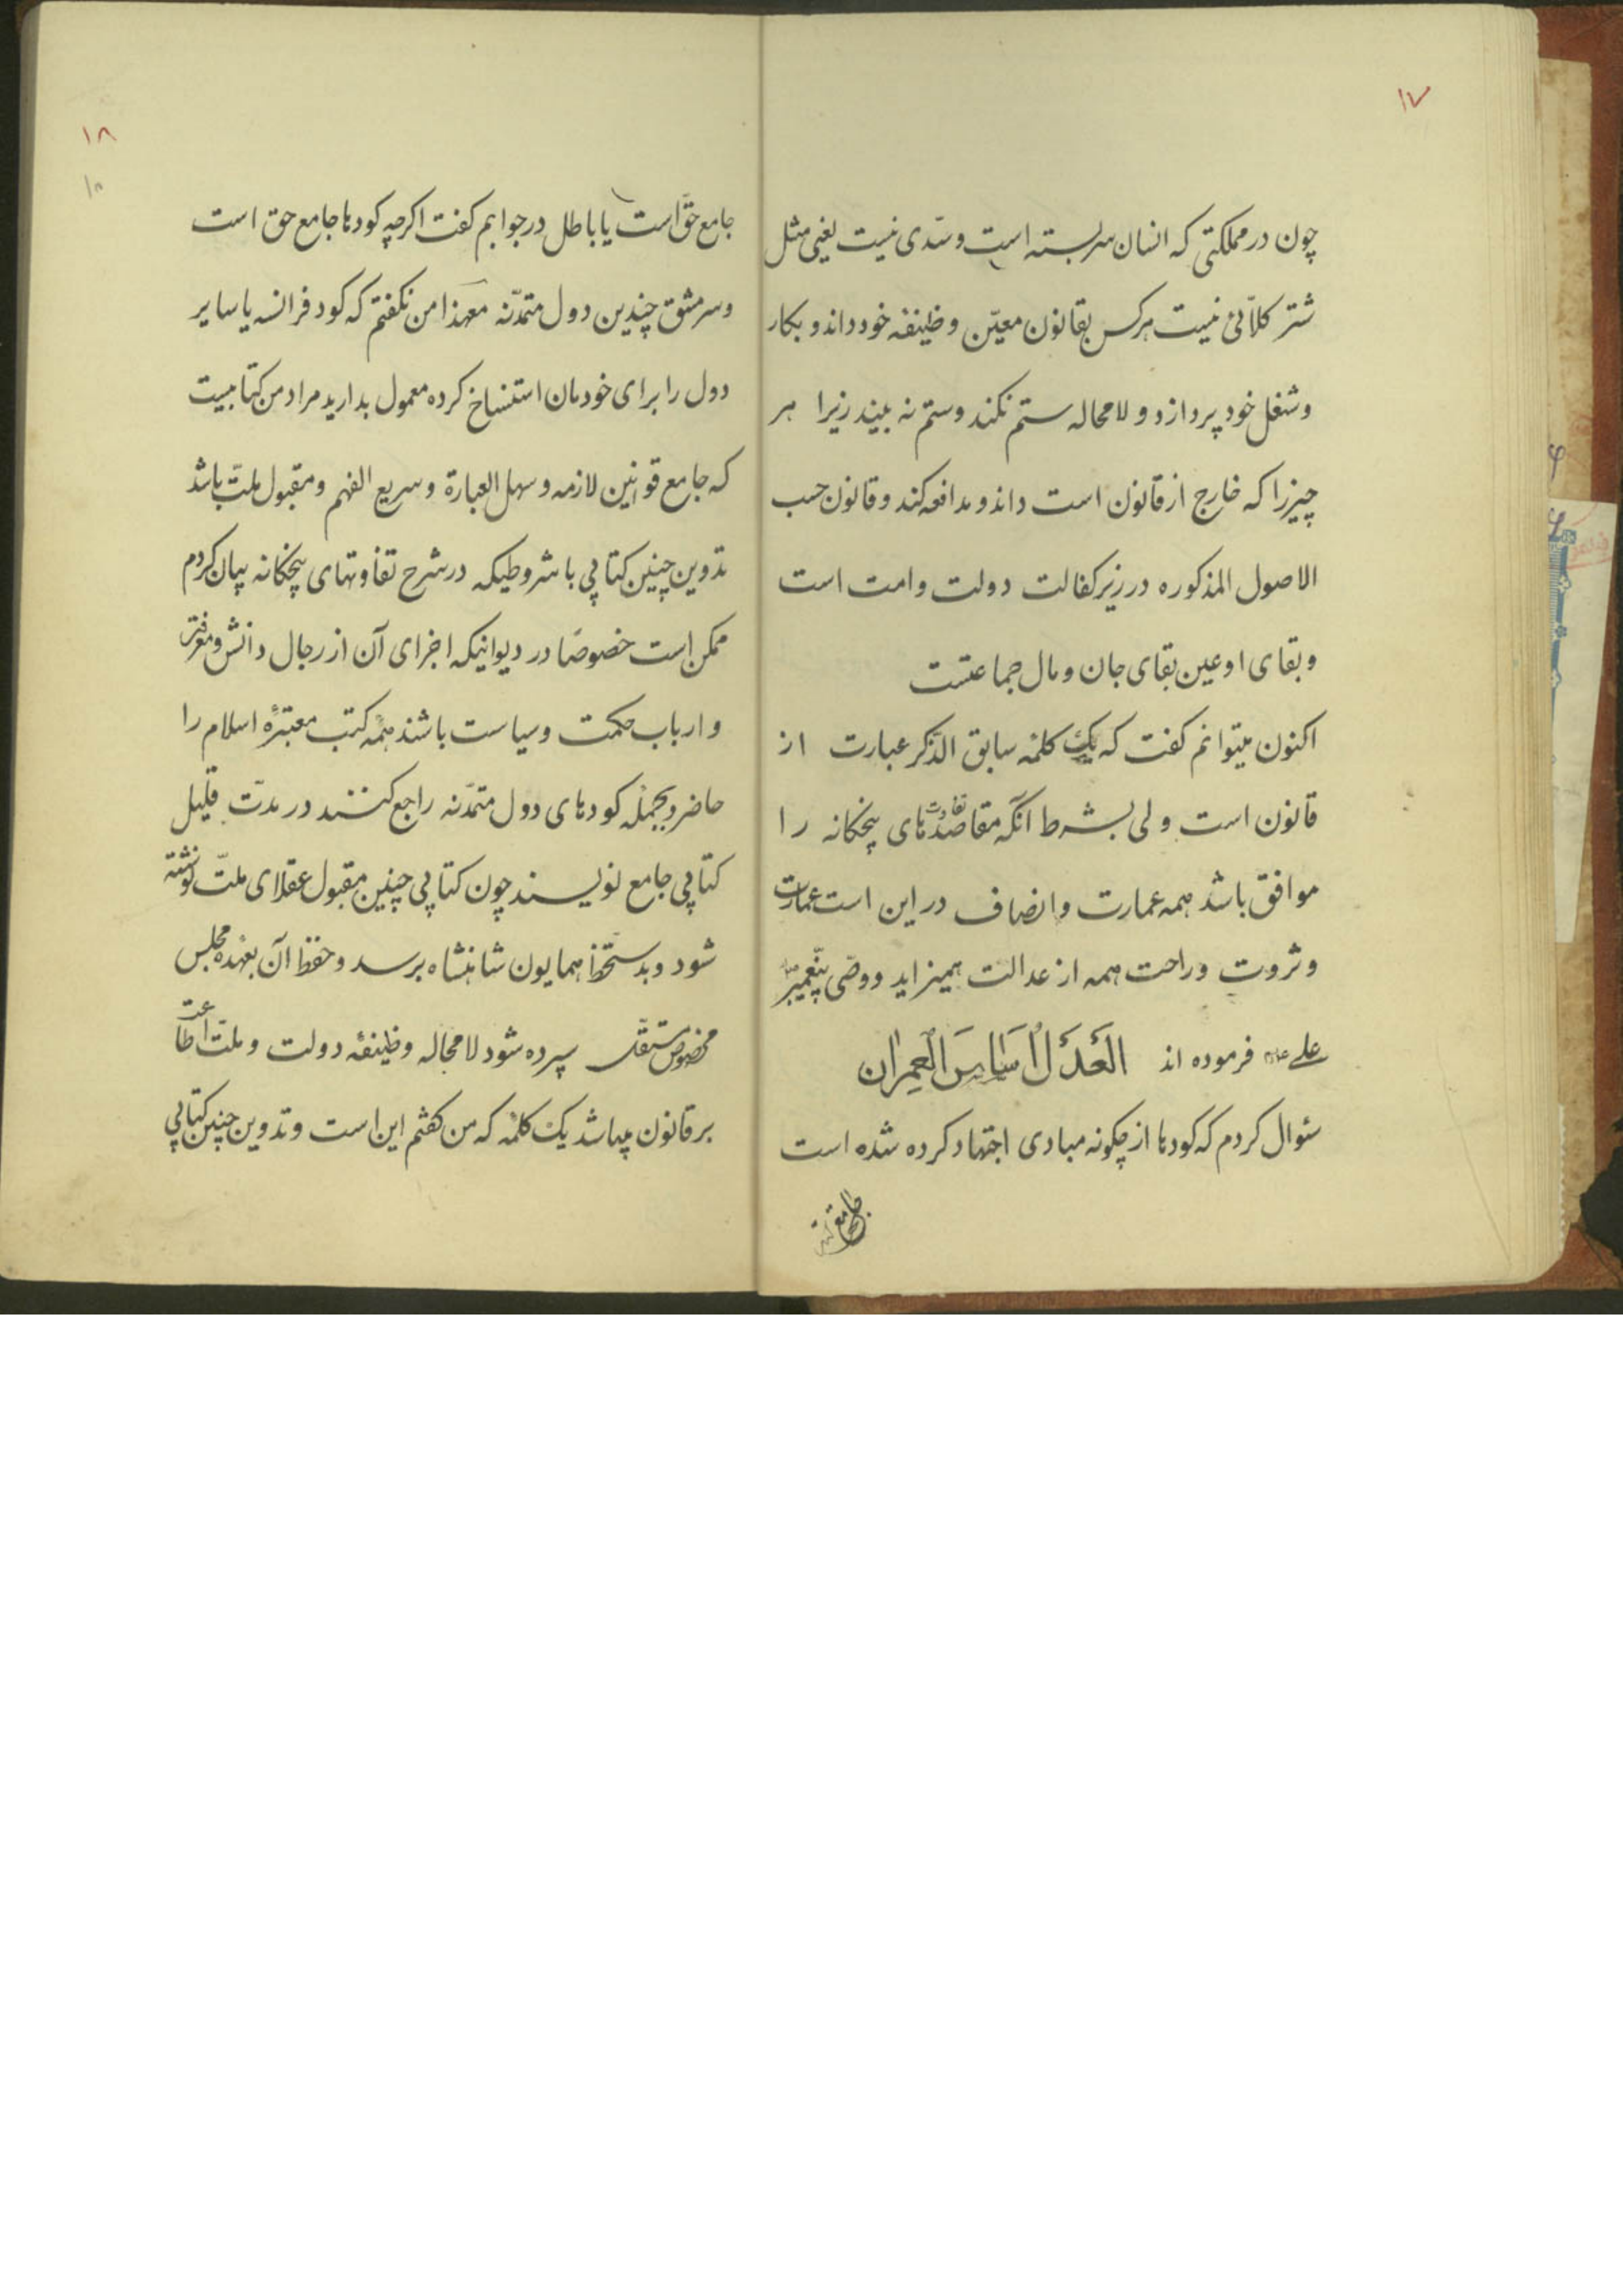 ۱۷
چون در مملکتی که انسان سربسته است و سدی نیست یعنی مثل
شتر کلائی نیست هرکس بقانون معین وظیفه خود داند و بکار
و شغل خود پردازد و لامحاله ستم نکند و ستم نه بیند زیرا هر
چیزرا که خارج از قانون است داند و مدافعه کند و قانون حسب
الاصول المذکوره در زیر کفالت دولت و امت است
و بقای او عین بقای جان و مال جماعتست
اکنون میتوانم کفت که یک کلمهٔ سابق الذکر عبارت از
قانون است ولی بشرط آنکه مقاصد تفاوت های پنجکانه را
موافق باشد همه عمارت و انصاف در این است عمارت
و ثروت و راحت همه از عدالت همیزاید و وصی پیغمبر
علی فرموده اند العَدلُ اَساسُ العمران
سئوال کردم که کودها از چکونه مبادی اجتهاد کرده شده است
جامع حق است
۱۸
۱۸
جامع حق است یا باطل در جوابم کفت اکرچه کودها جامع حق است
و سرمشق چندین دول متمدنه معهذا من نکفتم که کود فرانسه یا سایر
دول را برای خودمان استنساخ کرده معمول بدارید مراد من کتابیست
که جامع قوانین لازمه و سهل العبارة و سریع الفهم و مقبول ملت باشد
تدوین چنین کتابی با شروطیکه در شرح تفاوتهای پنجکانه بیان کردم
ممکن است خصوصًا در دیوانیکه اجزای آن از رجال دانش و معرفت
و ارباب حکمت و سیاست باشند همهٔ کتب معتبرهٔ اسلام را
حاضر و بجملهٔ کودهای دول متمدنه راجع کنند در مدت قلیل
کتابی جامع نویسند چون کتابی چنین مقبول عقلای ملت نوشته
شود و بدستخط همایون شاهنشاه برسد و حفظ آن بعهده مجلس
مخصوص مستقل سپرده شود لامحاله وظیفهٔ دولت و ملت اطاعت
بر قانون میباشد یک کلمه که من کفتم این است و تدوین چنین کتابی